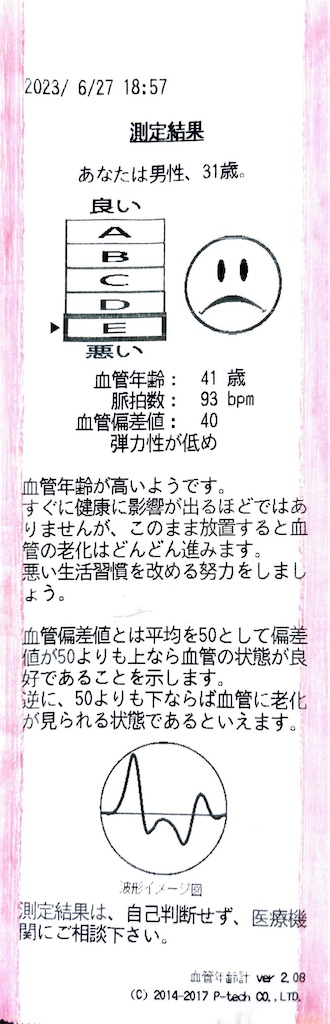 2023/ 6/27 18:57
測定結果
あなたは男性、31歳。
良い
A
B
C
D
E
悪い
血管年齢： 41 歳
脈拍数： 93 bpm
血管偏差値： 40
弾力性が低め
血管年齢が高いようです。
すぐに健康に影響が出るほどではあ
りませんが、このまま放置すると血
管の老化はどんどん進みます。
悪い生活習慣を改める努力をしまし
ょう。
血管偏差値とは平均を50として偏差
値が50よりも上なら血管の状態が良
好であることを示します。
逆に、50よりも下ならば血管に老化
が見られる状態であるといえます。
波形イメージ図
測定結果は、自己判断せず、医療機
関にご相談下さい。
血管年齢計 ver 2.08
(C) 2014-2017 P-tech CO.,LTD.